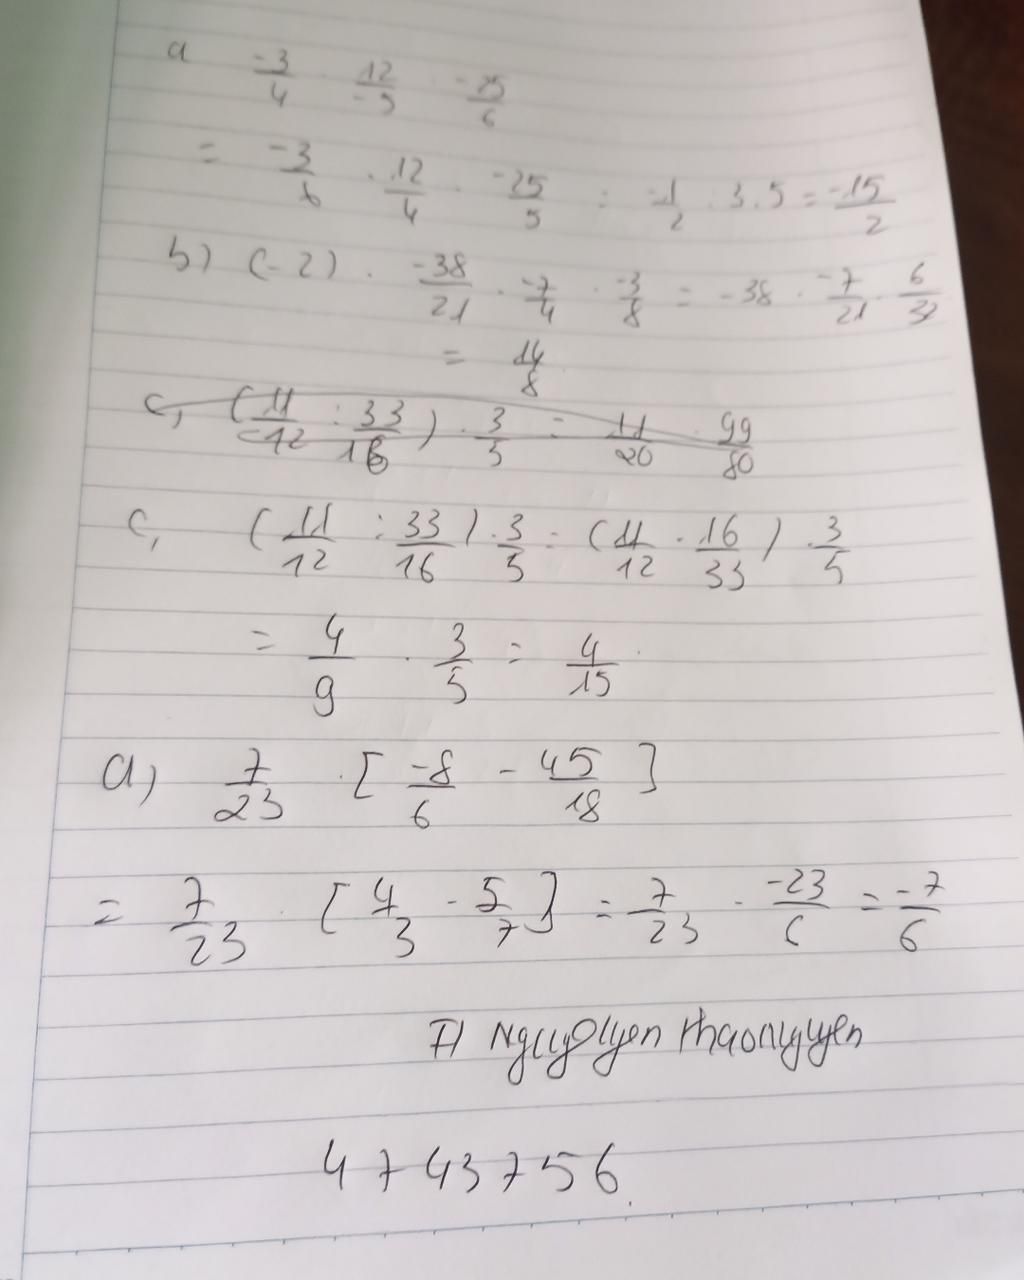 a -3/4 . 12/-5 . -25/6
= -3/6 . 12/4 . -25/5 = -1/2 . 3.5 = -15/2
b) (-2) . -38/21 . -7/4 . -3/8 = -38 . -7/21 .
= 14/8
c, (11/12 : 33/16) . 3/5 = 11/20 99/80
c, (11/12 : 33/16) . 3/5 = (11/12 . 16/33) . 3/5
= 4/9 . 3/5 = 4/15
a) 7/23 . [-8/6 - 45/18]
= 7/23 . [4/3 - 5/7] = 7/23 . -23/6 = -7/6
4743756